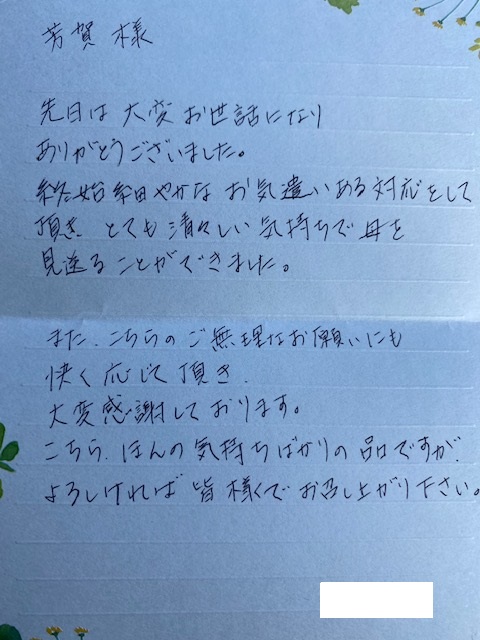 芳賀 様
先日は 大変 お世話になり
ありがとうございました。
終始 細やかな お気遣いある対応をして
頂き とても 清々しい 気持ちで 母を
見送ることができました。
また、こちらの ご無理なお願いにも
快く 応じて 頂き、
大変感謝しております。
こちら、ほんの気持ちばかりの 品ですが、
よろしければ 皆様でお召し上がり下さい。